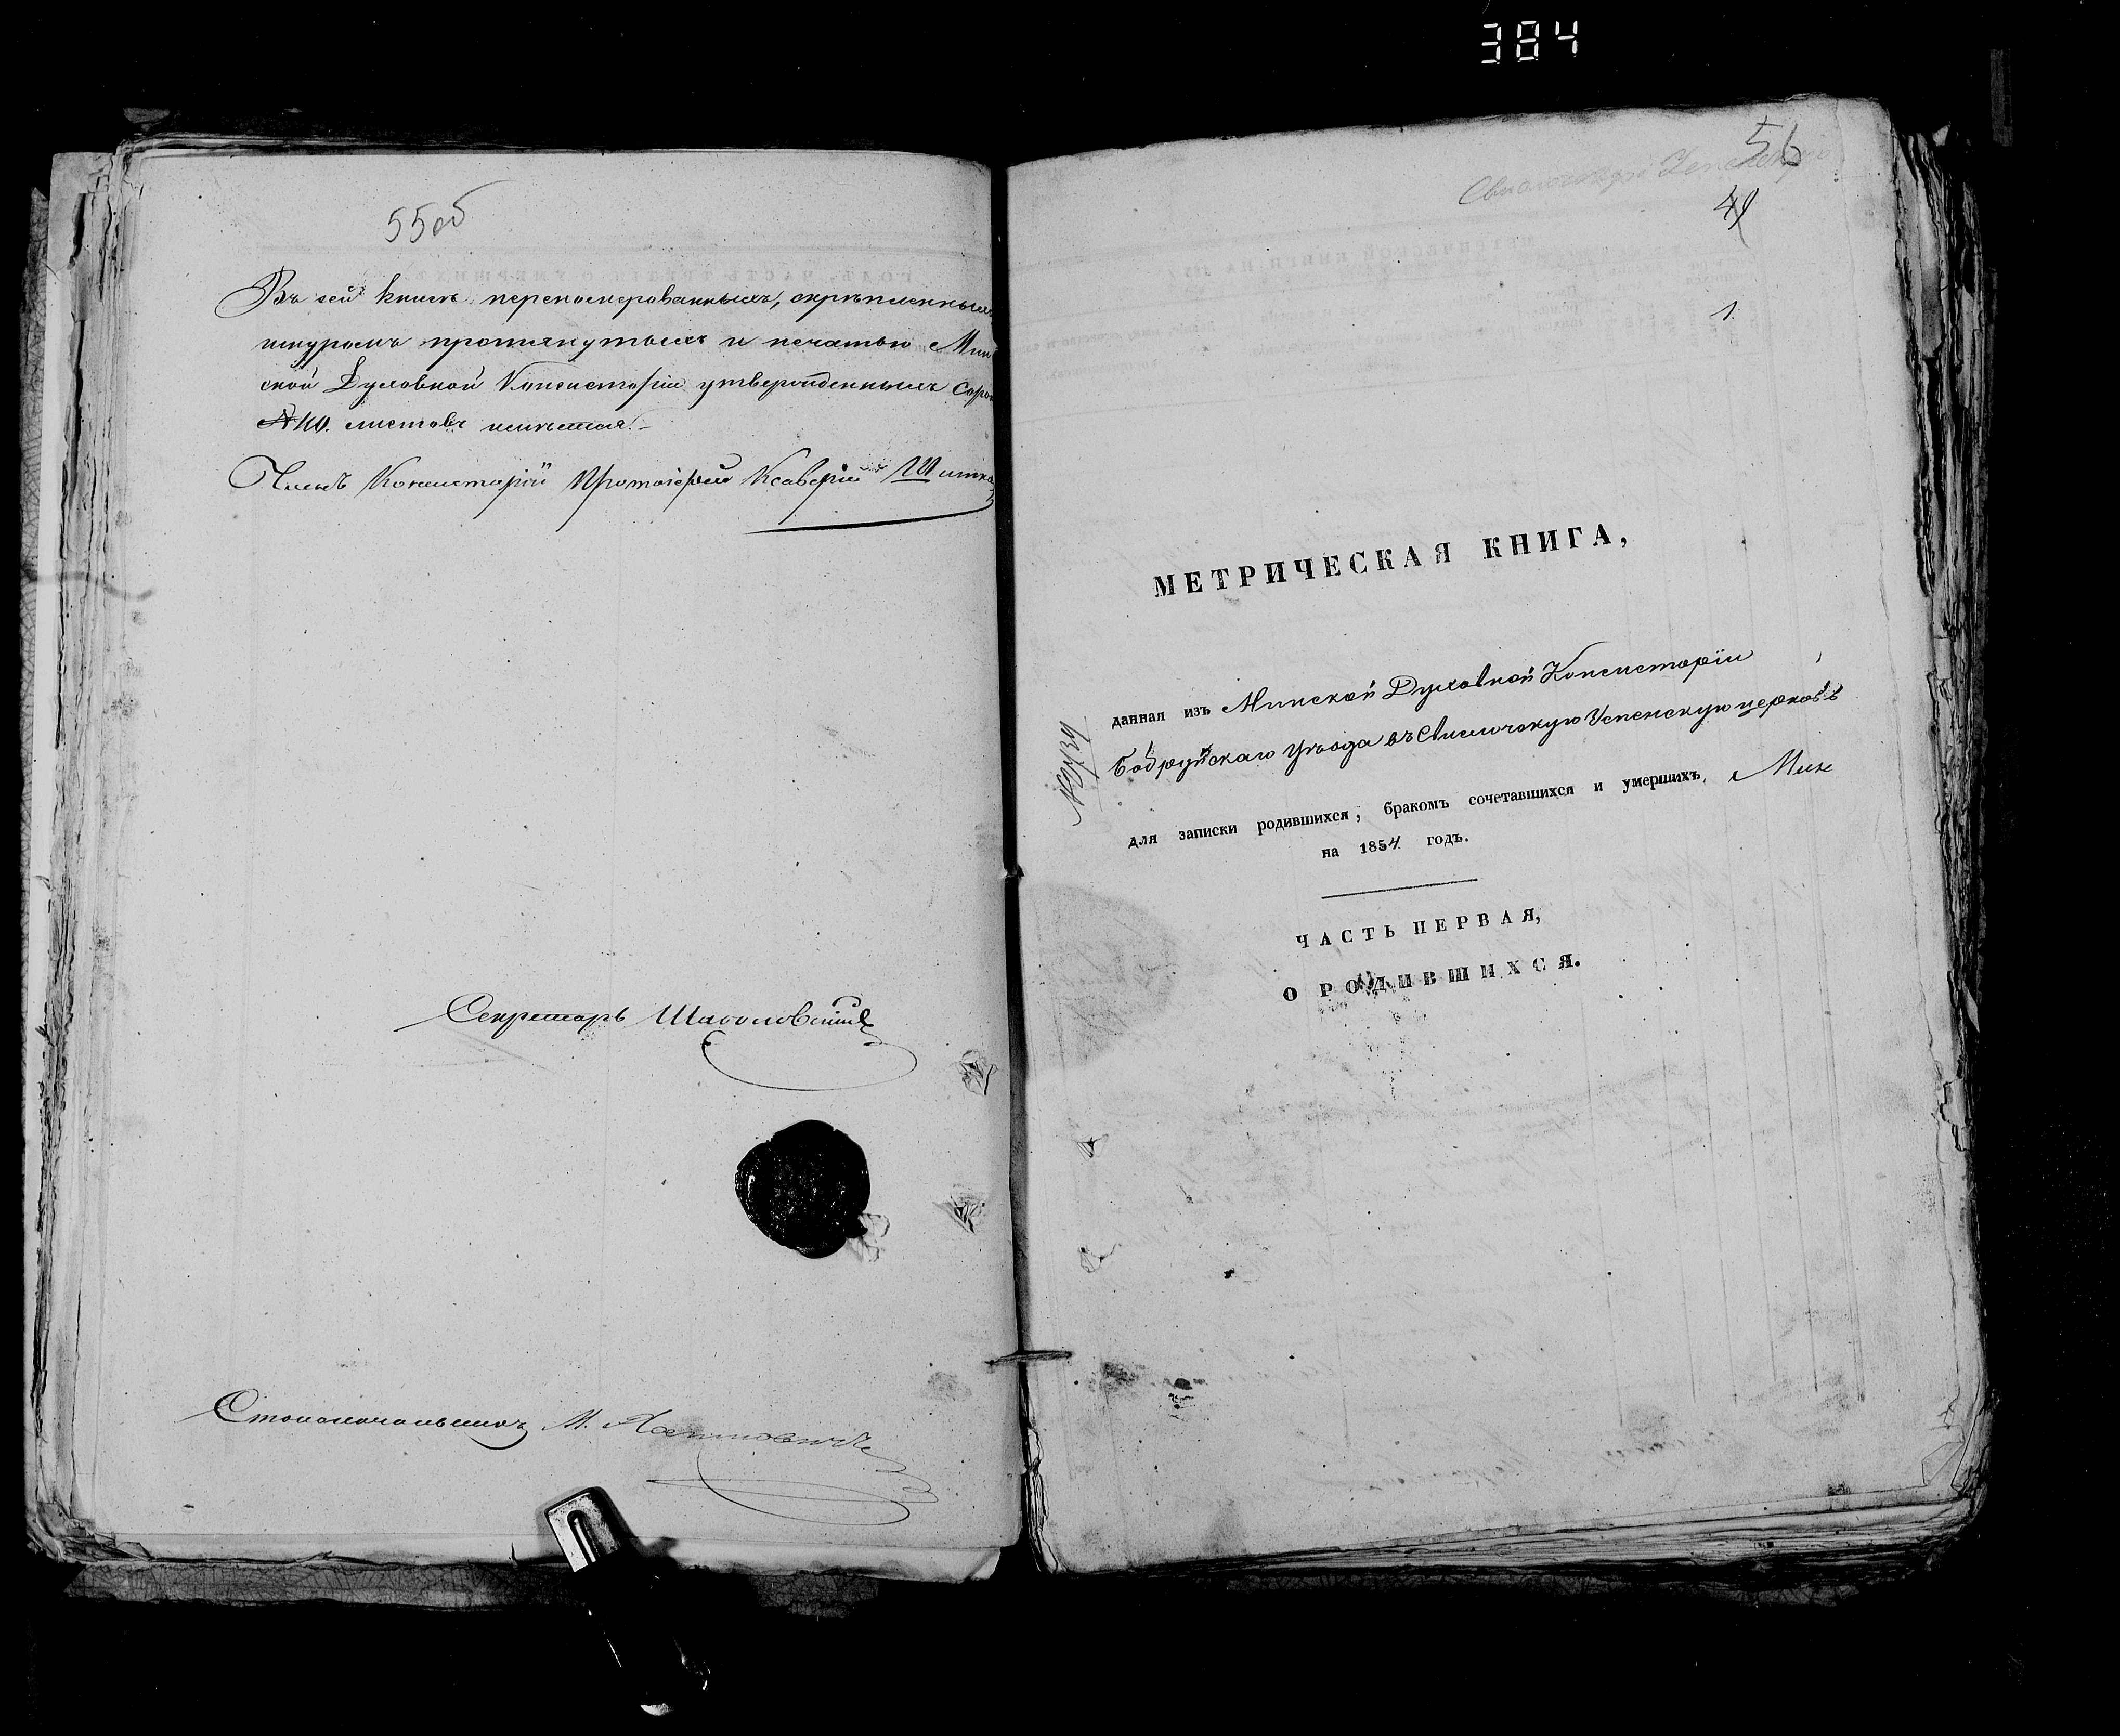 384
55об
Въ сей книгѣ перенумерованныхъ, скрѣпленныхъ
шнуромъ протянутыхъ и печатью Мин
ской Духовной Консисторіи утвержденныхъ сорок
40. листовъ имѣется.
Членъ Консисторіи Протоіерей Ксаверій
Секретарь
Столоначальникъ М.
56
41
1.
МЕТРИЧЕСКАЯ КНИГА,
данная изъ Минской Духовной Консисторіи
Бобруйскаго Уѣзда въ Свислочскую Успенскую церковь
для записки родившихся, бракомъ сочетавшихся и умершихъ,
на 1854 годъ.
ЧАСТЬ ПЕРВАЯ,
О РОДИВШИХСЯ.